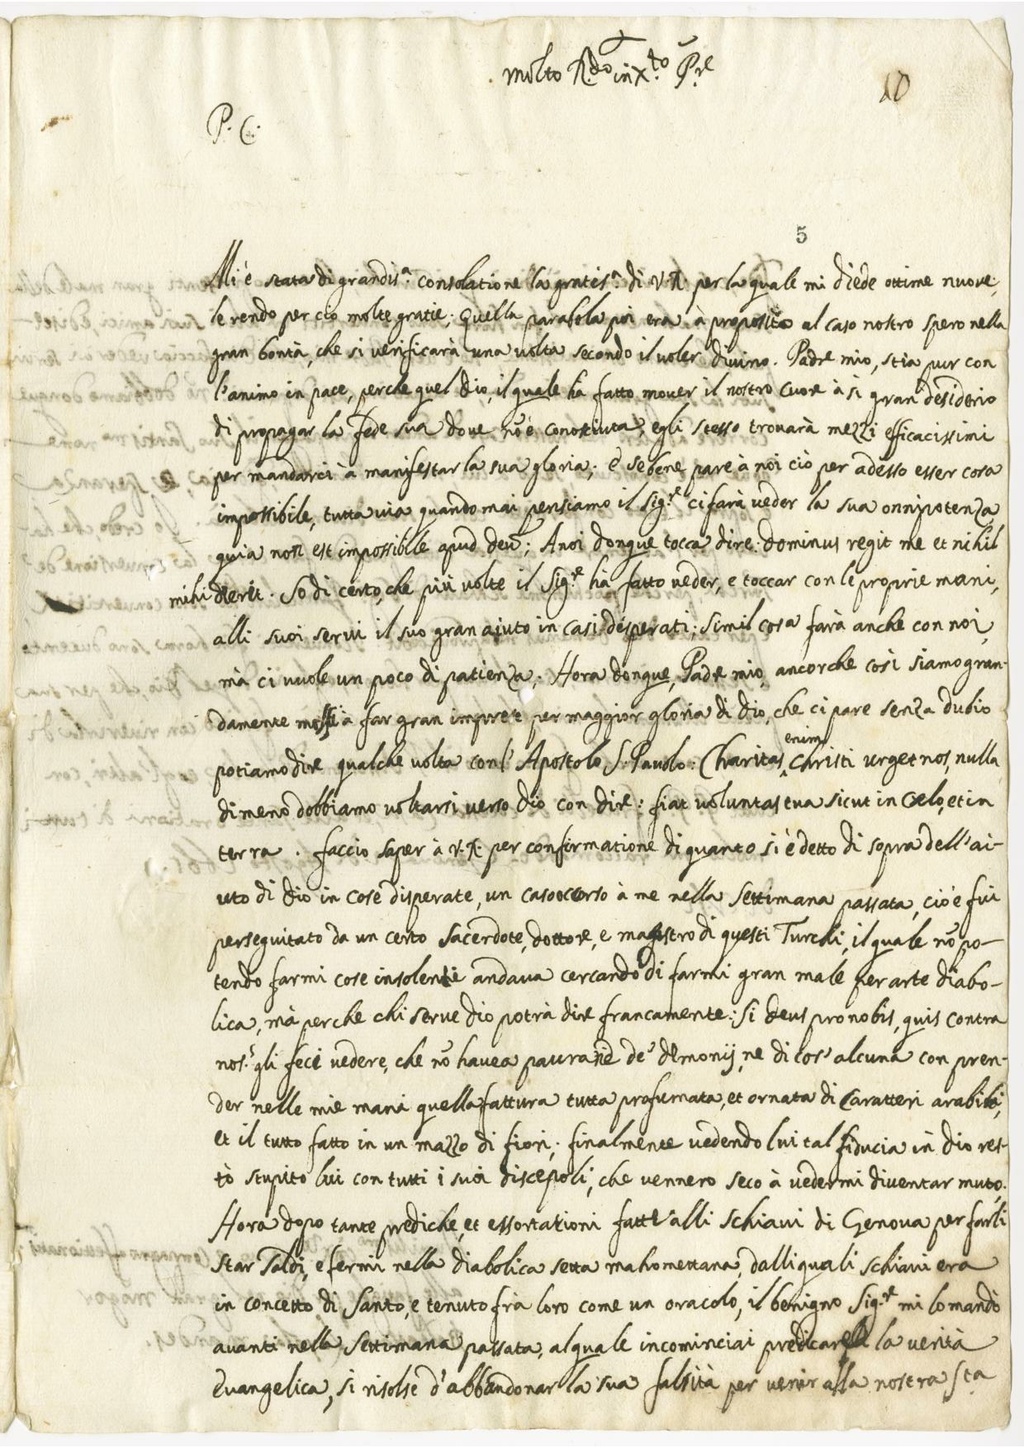 Molto R.do in X.to P.re
10
P. C.
5
Mi è stata di grandis.a consolatione la gratis.a di V.R. per la quale mi diede ottime nuove,
le rendo per ciò molte gratie; Quella parabola poi era a proposito al caso nostro spero nella
gran bontà, che si verificarà una volta secondo il voler divino. Padre mio, stia pur con
l'animo in pace, perche quel Dio, il quale ha fatto mover il nostro Cuore à sì gran desiderio
di propagar la Fede sua dove nō è conosciuta, egli stesso trovarà mezzi efficacissimi
per mandarci à manifestar la sua gloria; e sebene pare à noi ciò per adesso esser cosa
impossibile, tutta via quando mai pensiamo il Sig.re ci farà veder la sua onnipotenza,
quia non est impossibile apud deū; A noi donque tocca dire: dominus regit me et nihil
mihi deerit. So di certo, che più volte il Sig.re hà fatto veder, e toccar con le proprie mani,
alli suoi servi il suo gran aiuto in casi desperati; simil cosa farà anche con noi,
mà ci vuole un poco di patienza. Hora donque, Padre mio, ancorche così siamo gran-
damente mossi à far gran imprese per maggior gloria di Dio, che ci pare senza dubio
potiamo dire qualche volta con l'Apostolo S. Pavolo: Charitas enim Christi urget nos, nulla
dimeno dobbiamo voltarsi verso Dio con dire: fiat voluntas tua sicut in Celo, et in
terra. Faccio saper à V.R. per confirmatione di quanto si è detto di sopra dell'ai-
uto di Dio in cose disperate, un caso occorso à me nella settimana passata, cioè fui
perseguitato da un certo Sacerdote, dottore, e maestro di questi Turchi, il quale nō po-
tendo farmi cose insolenti andava cercando di farmi gran male per arte diabo-
lica, mà perche chi serve Dio potrà dire francamente: Si Deus pro nobis, quis contra
nos? gli feci vedere, che nō havea paura nè de' demonij, ne di cos' alcuna con pren-
der nelle mie mani quella fattura tutta profumata, et ornata di Caratteri arabici,
et il tutto fatto in un mazzo di fiori; finalmente vedendo lui tal fiducia in Dio res-
tò stupito lui con tutti i suoi discepoli, che vennero seco à vedermi diventar muto.
Hora dopo tante prediche, et essortationi fatte alli schiavi di Genova per farli
star saldi, e fermi nella diabolica setta mahomettana, dalli quali schiavi era
in concetto di Santo, e tenuto frà loro come un oracolo, il benigno Sig.re mi lo mandò
avanti nella settimana passata, al quale incominciai predicar la verità
Evangelica, si risolse d'abbandonar la sua falsità per venir alla nostra s.ta